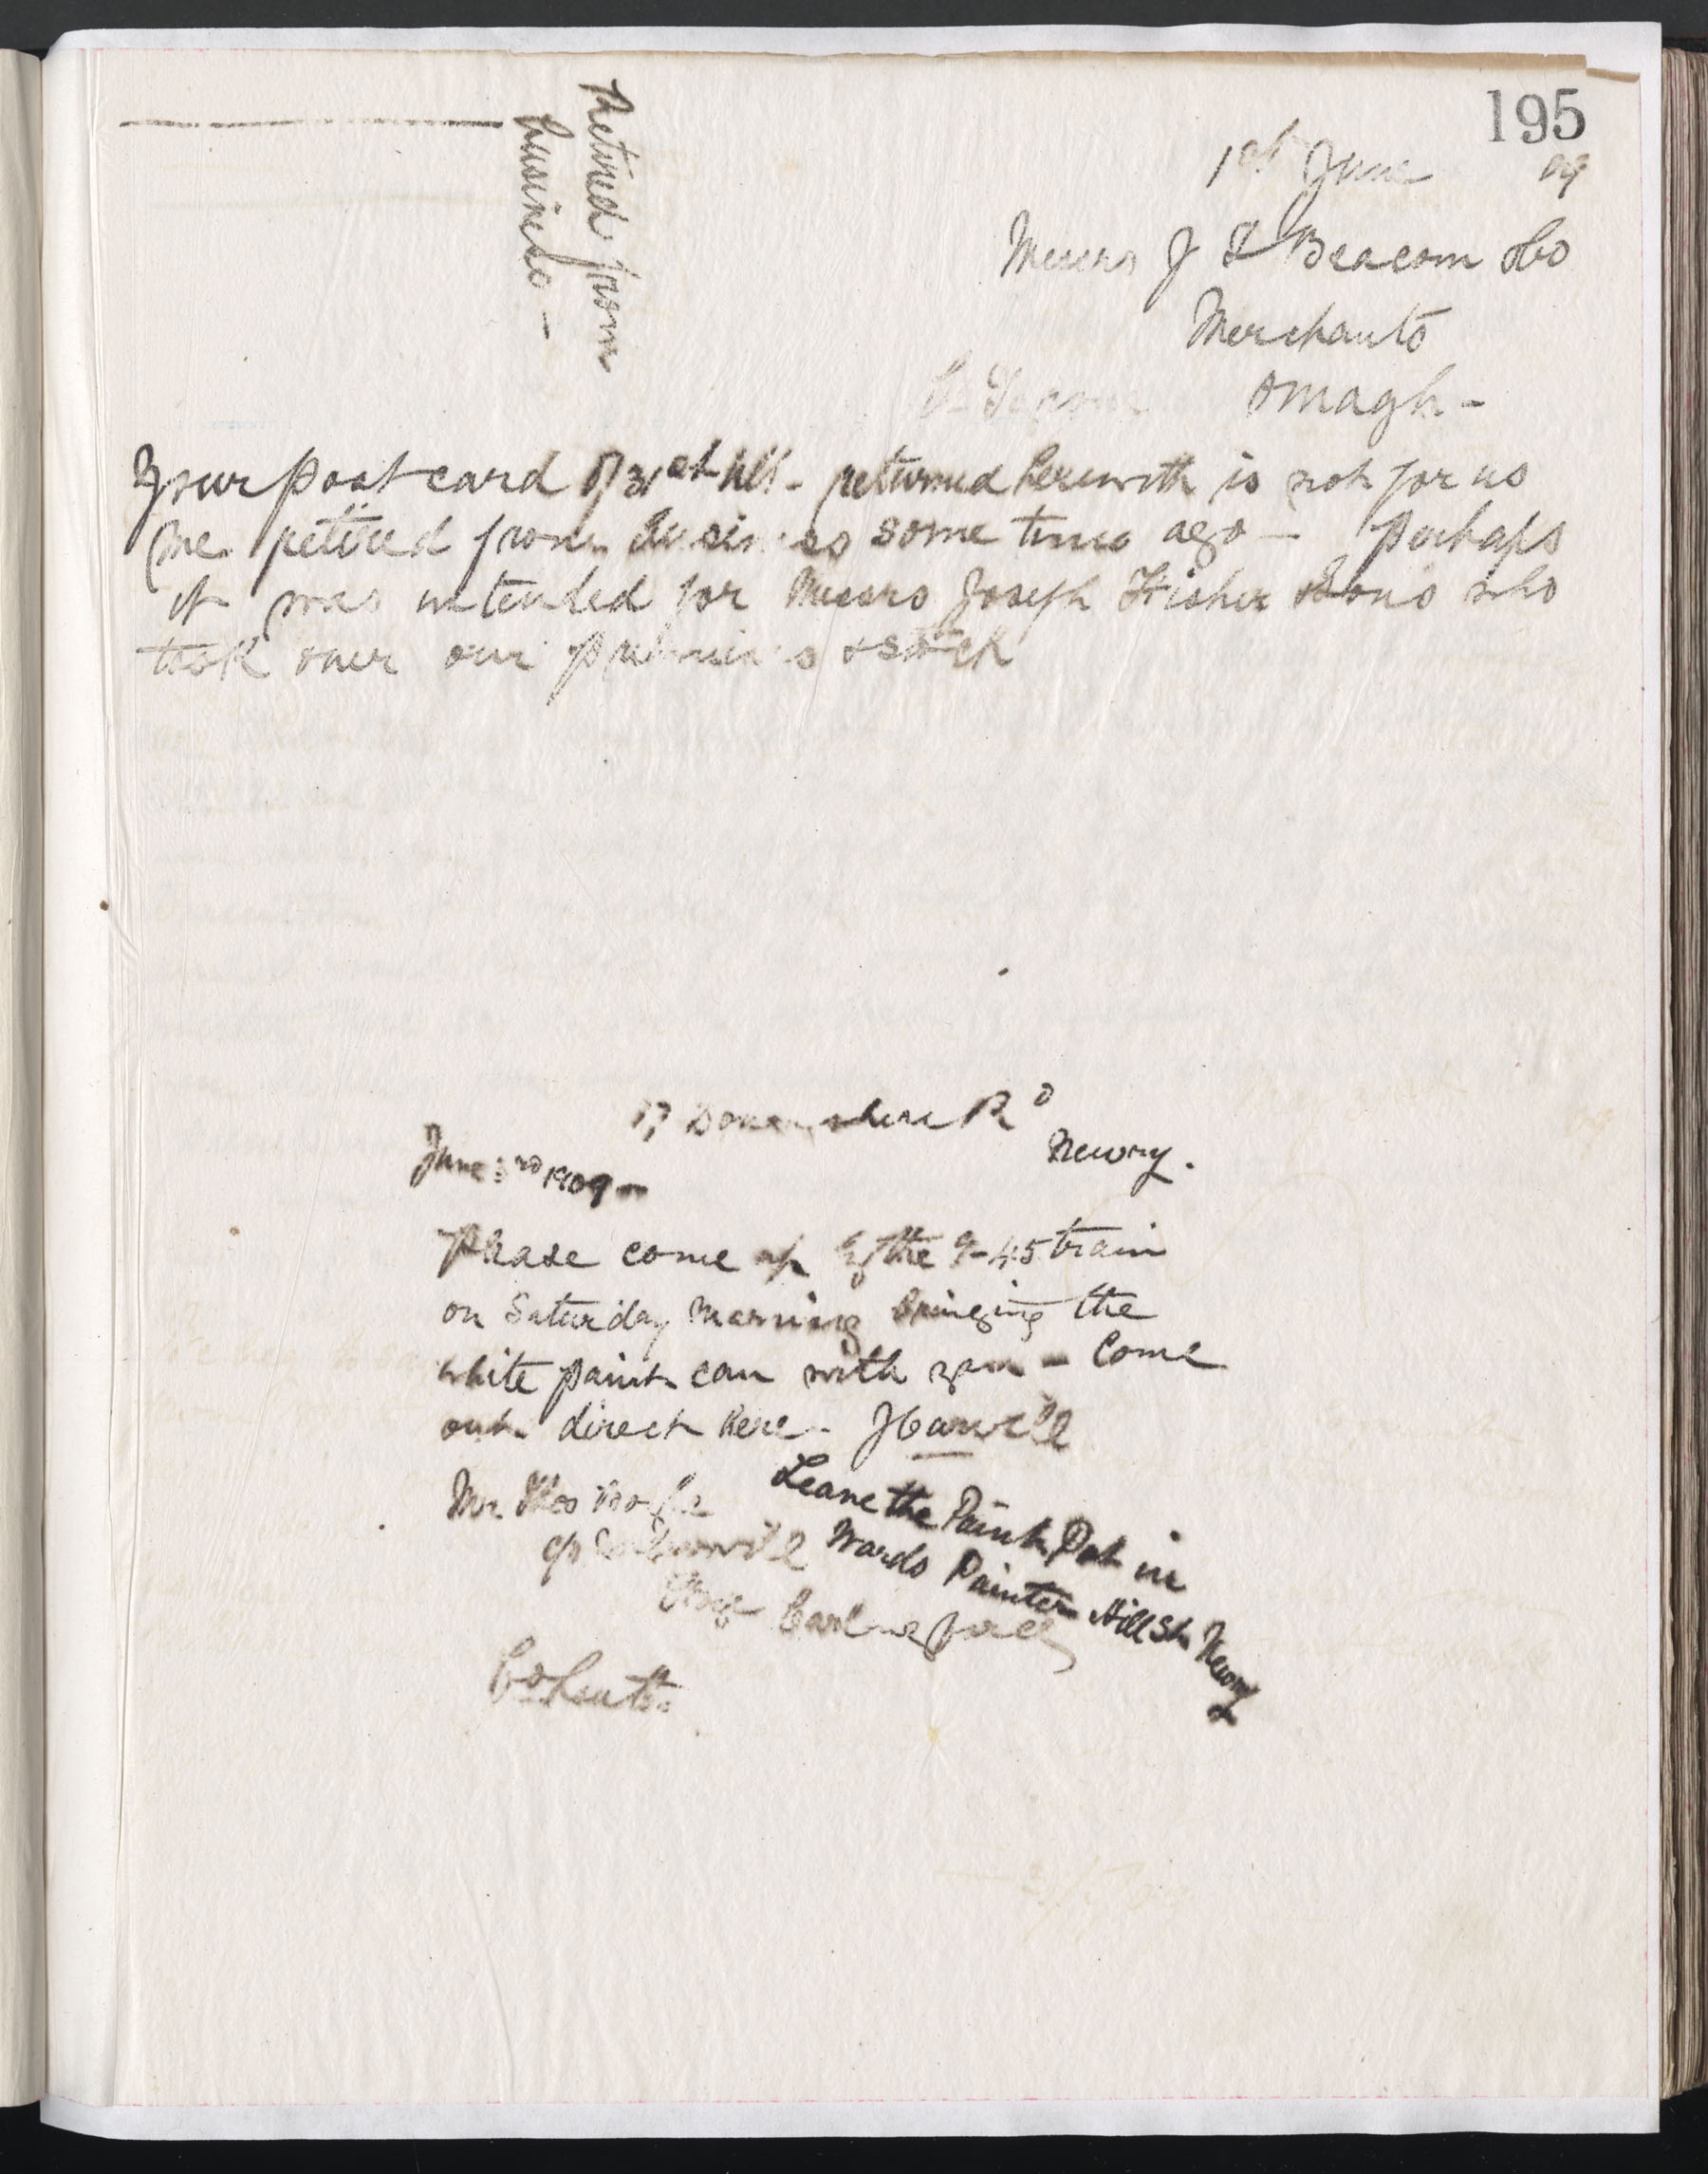 195
Retired from
business -
1st June 09
Messrs J & Beacom & Co
Merchants
Omagh -
Your post card of 31st Ult - returned herewith is not for us
We retired from business some time ago - Perhaps
it was intended for Messrs Joseph Fisher & Sons who
took over our premises & stock
17 Downshire Rd
Newry.
June 3rd 1909 -
Please come up by the 9-45 train
on Saturday morning bringing the
white paint can with you - Come
out direct here - J Carvill
Mr Thos Boyle
c/o Carvill
Carlingford
Co Louth.
Leave the Paint Pot in
Wards Painter Hill St Newry